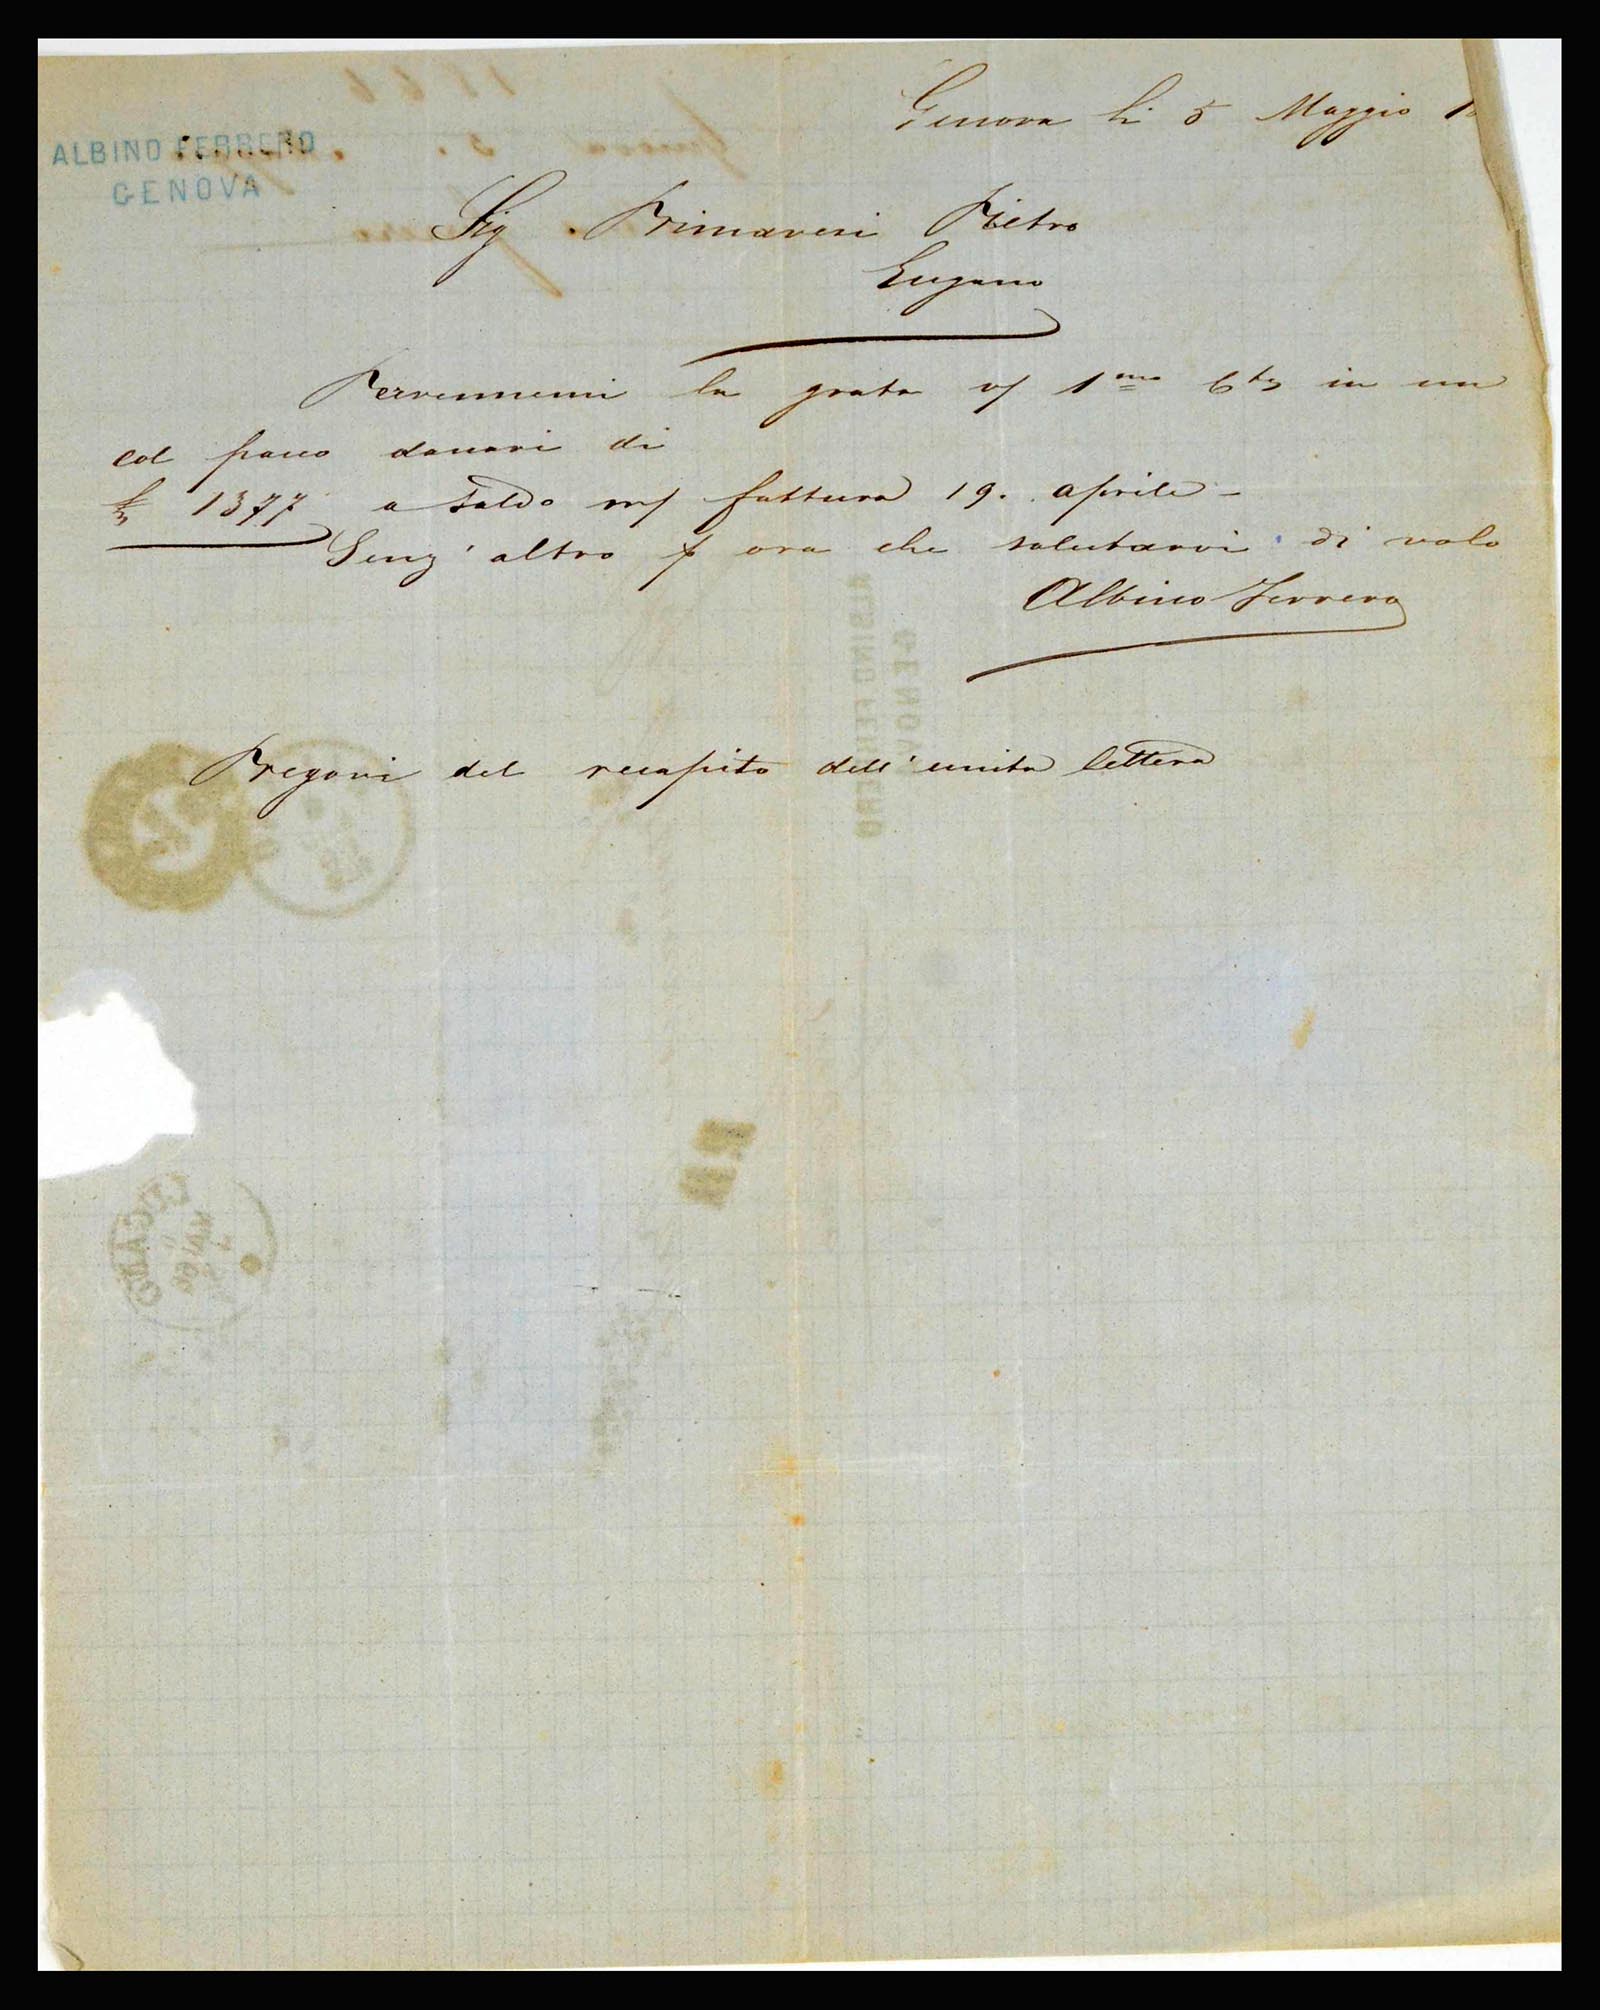 Genova li 5 Maggio 18
ALBINO FERRERO
GENOVA
Sig. Primavesi Pietro
Lugano
Pervennemi la grata v/ 1mo Cte in un
col pacco danari di
£ 1377 a saldo m/ fattura 19. aprile -
Senz' altro p ora che salutarvi di volo
Albino Ferrero
Pregovi del recapito dell' unita lettera
ALBINO FERRERO
GENOVA
1866
Genova 5.
LUGANO